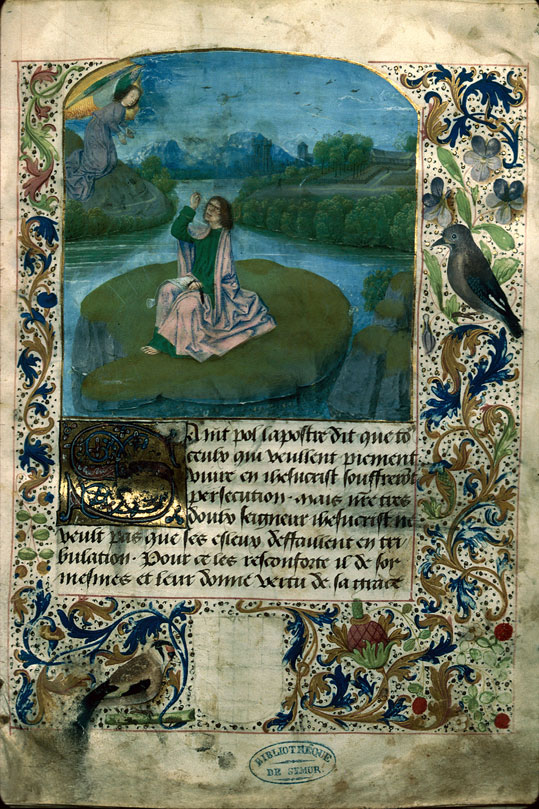 Saint pol lapostre dit que to
ceulx qui veullent piement
viure en ihesucrist souffreront
persecution. mais nre tres
doulx seigneur ihesucrist ne
veult pas que ses esleuz deffaillent en tri
bulation. Pour ce les resconforte il de soy
mesmes et leur donne vertu de sa grace
BIBLIOTHEQUE
DE SEMUR.